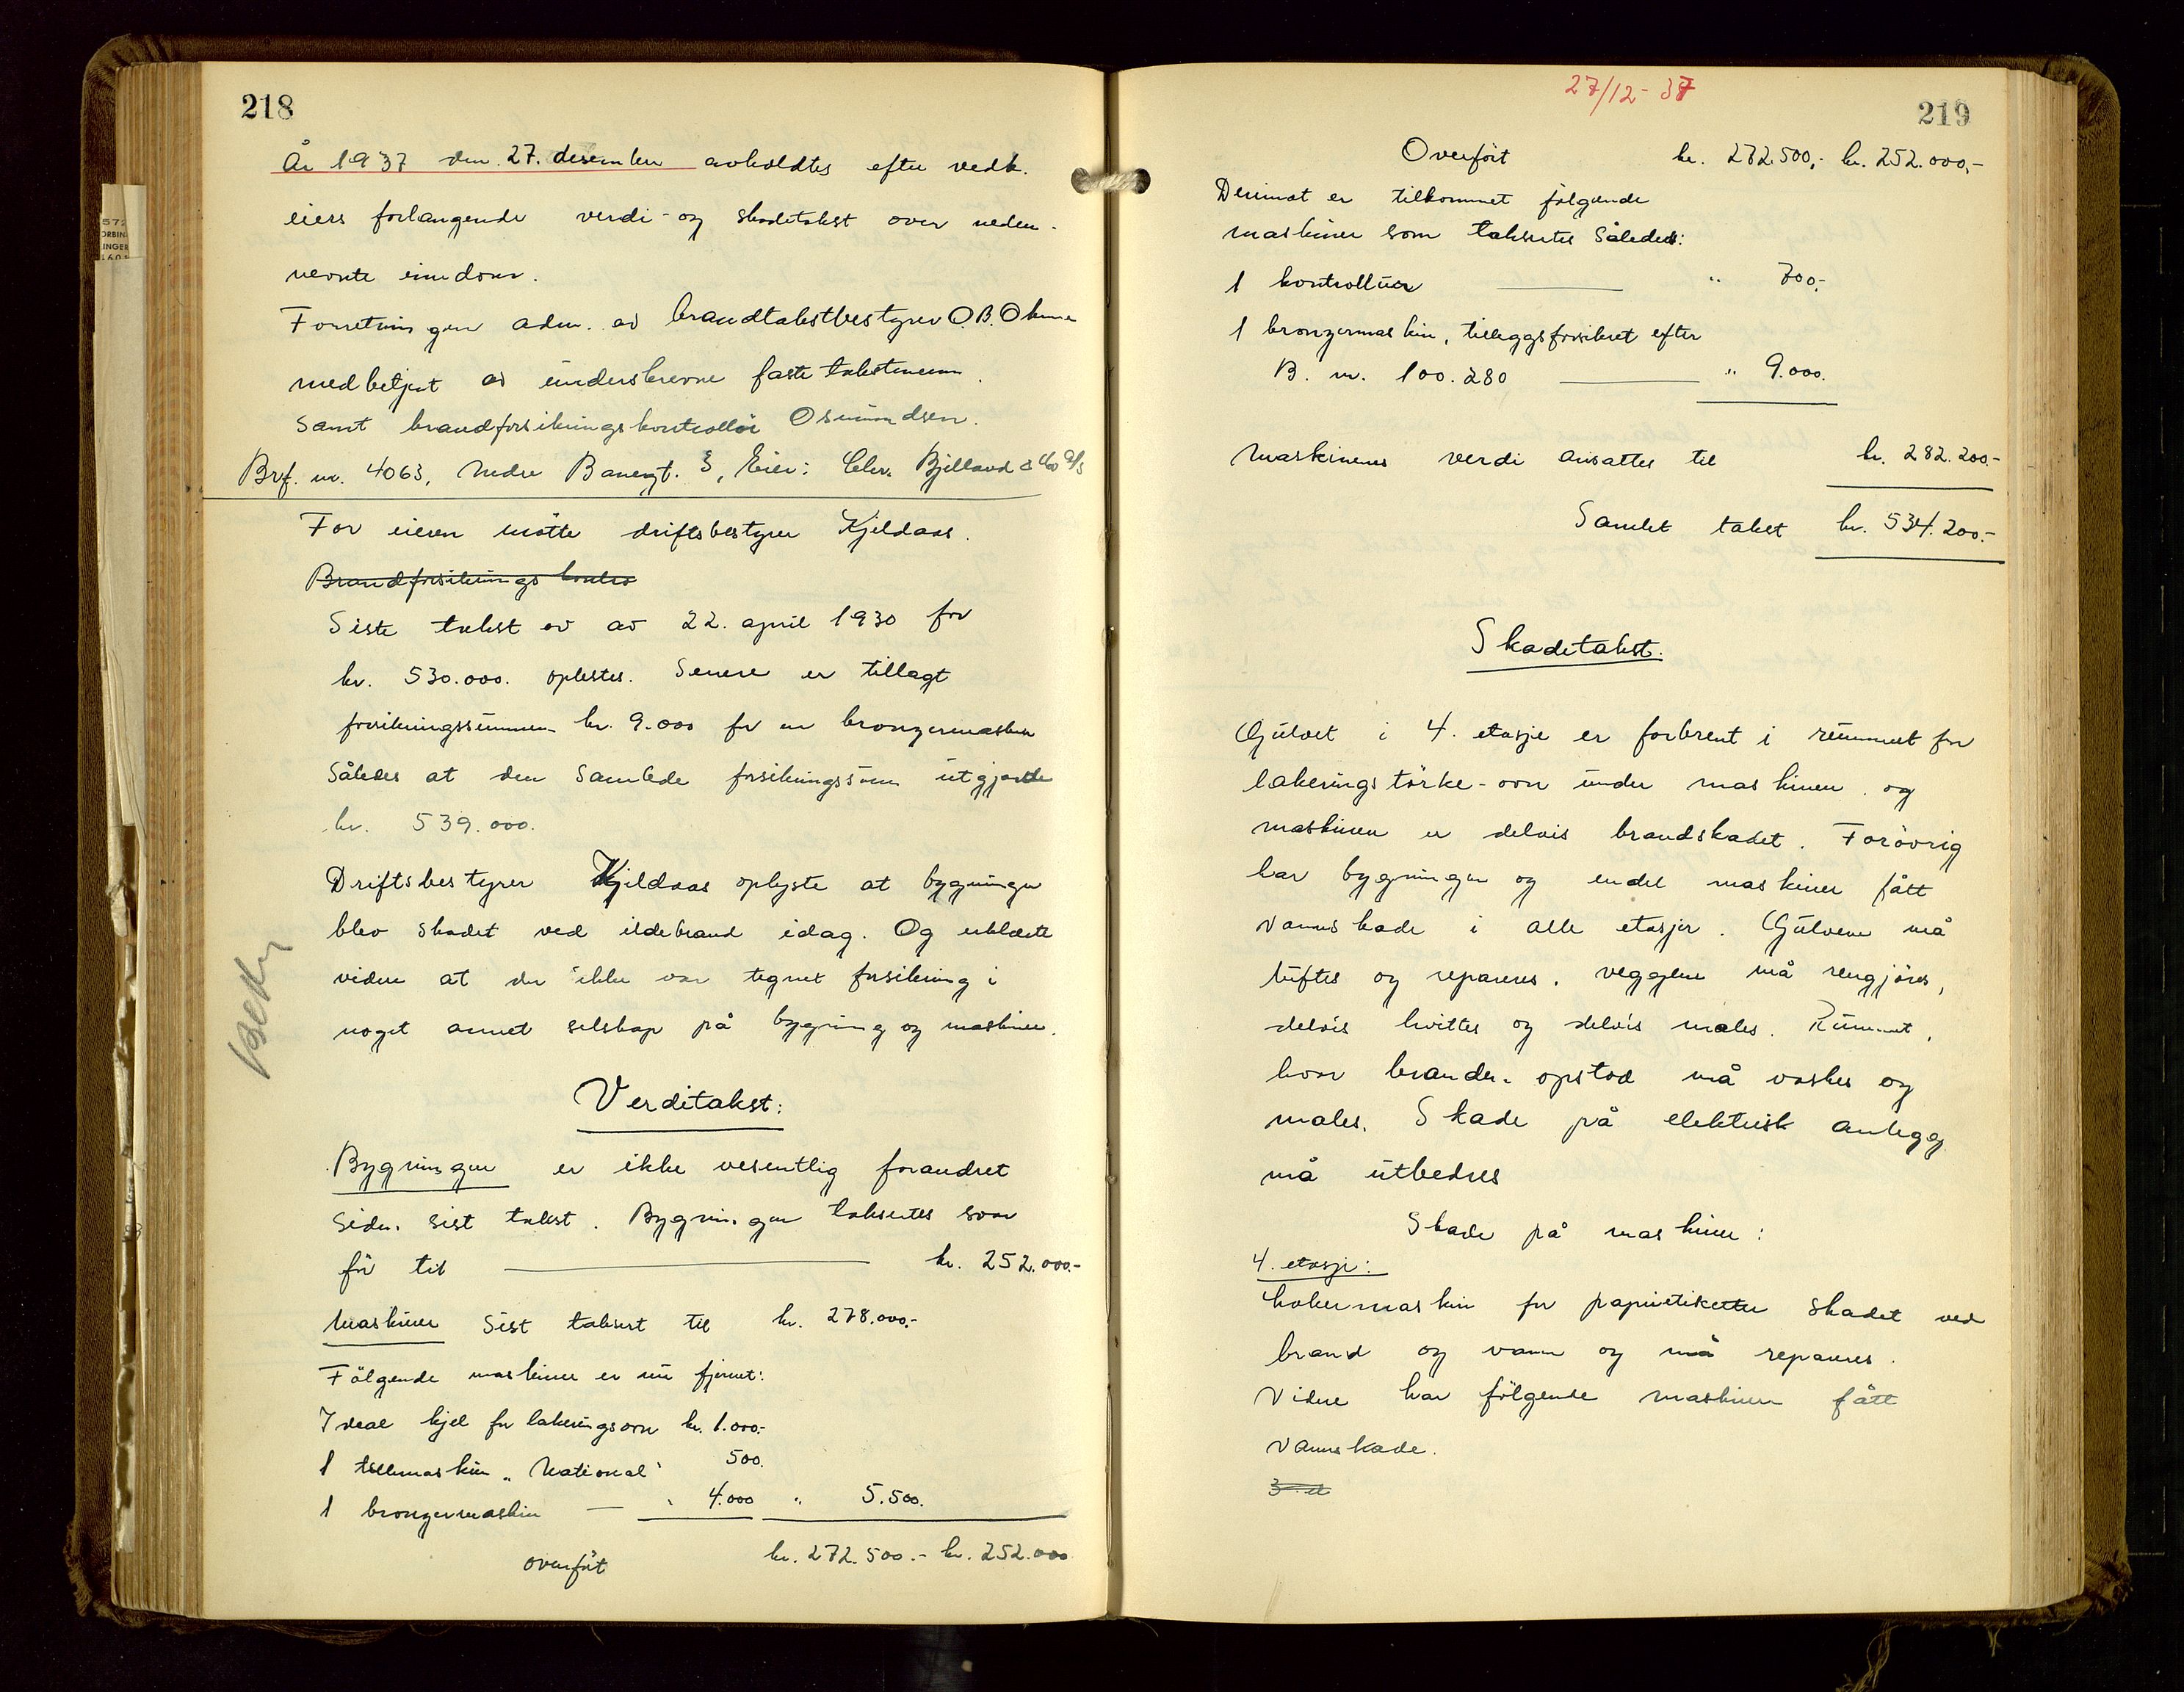 218
År 1937 den 27. desember avholdtes efter vedk.
eiers forlangende verdi- og skadetakst over neden-
nevnte eiendom.
Forretningen adm. av brandtakstbestyrer O.B. Okune
medbetjent av underskrevne faste takstmenn
samt brandforsikringskontrollør Osmundsen.
Brf. nr. 4063, Nedre Banegt. 3, Eier: Chr. Bjelland & Co A/S
For eieren møtte driftsbestyrer Kjeldaas.
Brandforsikringskontro
Siste takst er av 22. april 1930 for
kr. 530.000. oplestes. Senere er tillagt
forsikringssummen kr. 9.000 for en bronzermaskin
således at den samlede forsikringssum utgjorde
kr. 539.000.
Driftsbestyrer Kjeldaas oplyste at bygningen
blev skadet ved ildebrand idag. Og erklærte
videre at der ikke var tegnet forsikring i
noget annet selskap på bygning og maskiner.
Verditakst:
Bygningen er ikke vesentlig forandret
siden sist takst. Bygningen takseres som
før til kr. 252.000.-
Maskiner sist taksert til kr. 278.000.-
Følgende maskiner er nu fjernet:
Ideal kjel for lakeringsovn kr. 1.000.-
1 tellemaskin "National" 500.
1 bronzermaskin — " 4.000 " 5.500.
overført kr. 272.500.- kr. 252.000
27/12-37
219
Overført kr. 272.500,- kr. 252.000,-
Derimot er tilkommet følgende
maskiner som takseres således:
1 kontrollur " 700,-
1 bronzermaskin, tilleggsforsikret efter
B. nr. 100.280 " 9.000.
Maskinenes verdi ansattes til kr. 282.200.-
Samlet takst kr. 534.200.-
Skadetakst.
Gulvet i 4. etasje er forbrent i rummet for
lakeringstørke-ovn under maskinen. og
maskinen er delvis brandskadet. Forøvrig
har bygningen og endel maskiner fått
vannskade i alle etasjer. Gulvene må
luftes og repareres. veggene må rengjøres,
delvis hvittes og delvis males. Rummet,
hvor branden opstod må vaskes og
males. Skade på elektrisk anlegg
må utbedres
Skade på maskiner:
4. etasje:
Lakermaskin for papiretiketter skadet ved
brand og vann og må repareres.
Videre har følgende maskiner fått
vannskade.
3 et